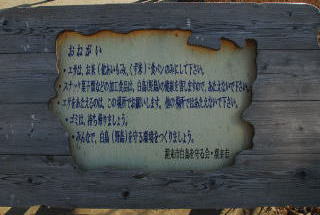 おねがい
・エサは、お米(籾あいもみ、くず米)・食パンのみにして下さい。
・スナック菓子類などの加工食品は、白鳥(野鳥)の健康を害しますので、あたえないで下さい。
・エサをあたえるのは、この場所でお願いします。他の場所ではあたえないで下さい。
・ゴミは、持ち帰りましょう。
・みんなで、白鳥(野鳥)を守る環境をつくりましょう。
潮来市白鳥を守る会・潮来市